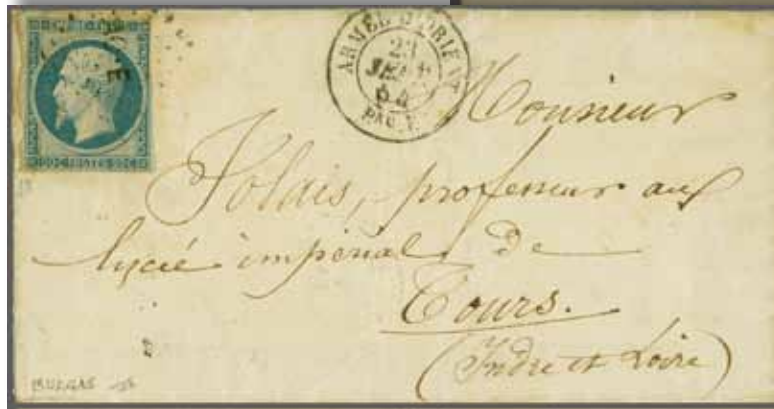 ARMÉE D'ORIENT
23
SEPT
54
Monsieur
Jolais, professeur aux
lycée impérial de
Tours.
(Indre et Loire)
BURGAS